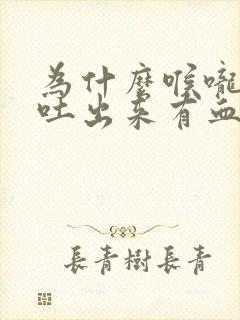 為什麼喉嚨
吐出来有血
長青樹長青